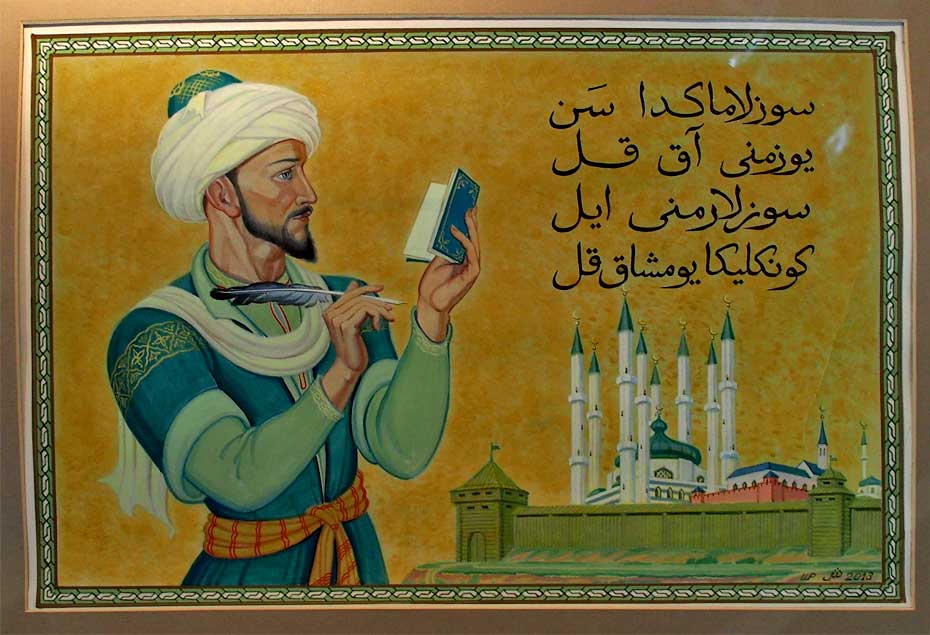 سوزلاماكدا سَن
يوزمنى آق قل
سوزلارمنى ايل
كونكليكا يومشاق قل
2013